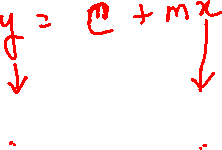 y = c + mx